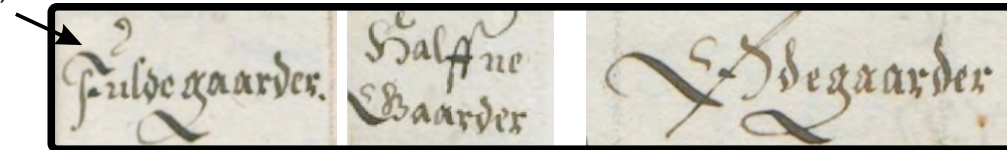 Fulde gaarder.
Halffue
Gaarder
Ødegaarder